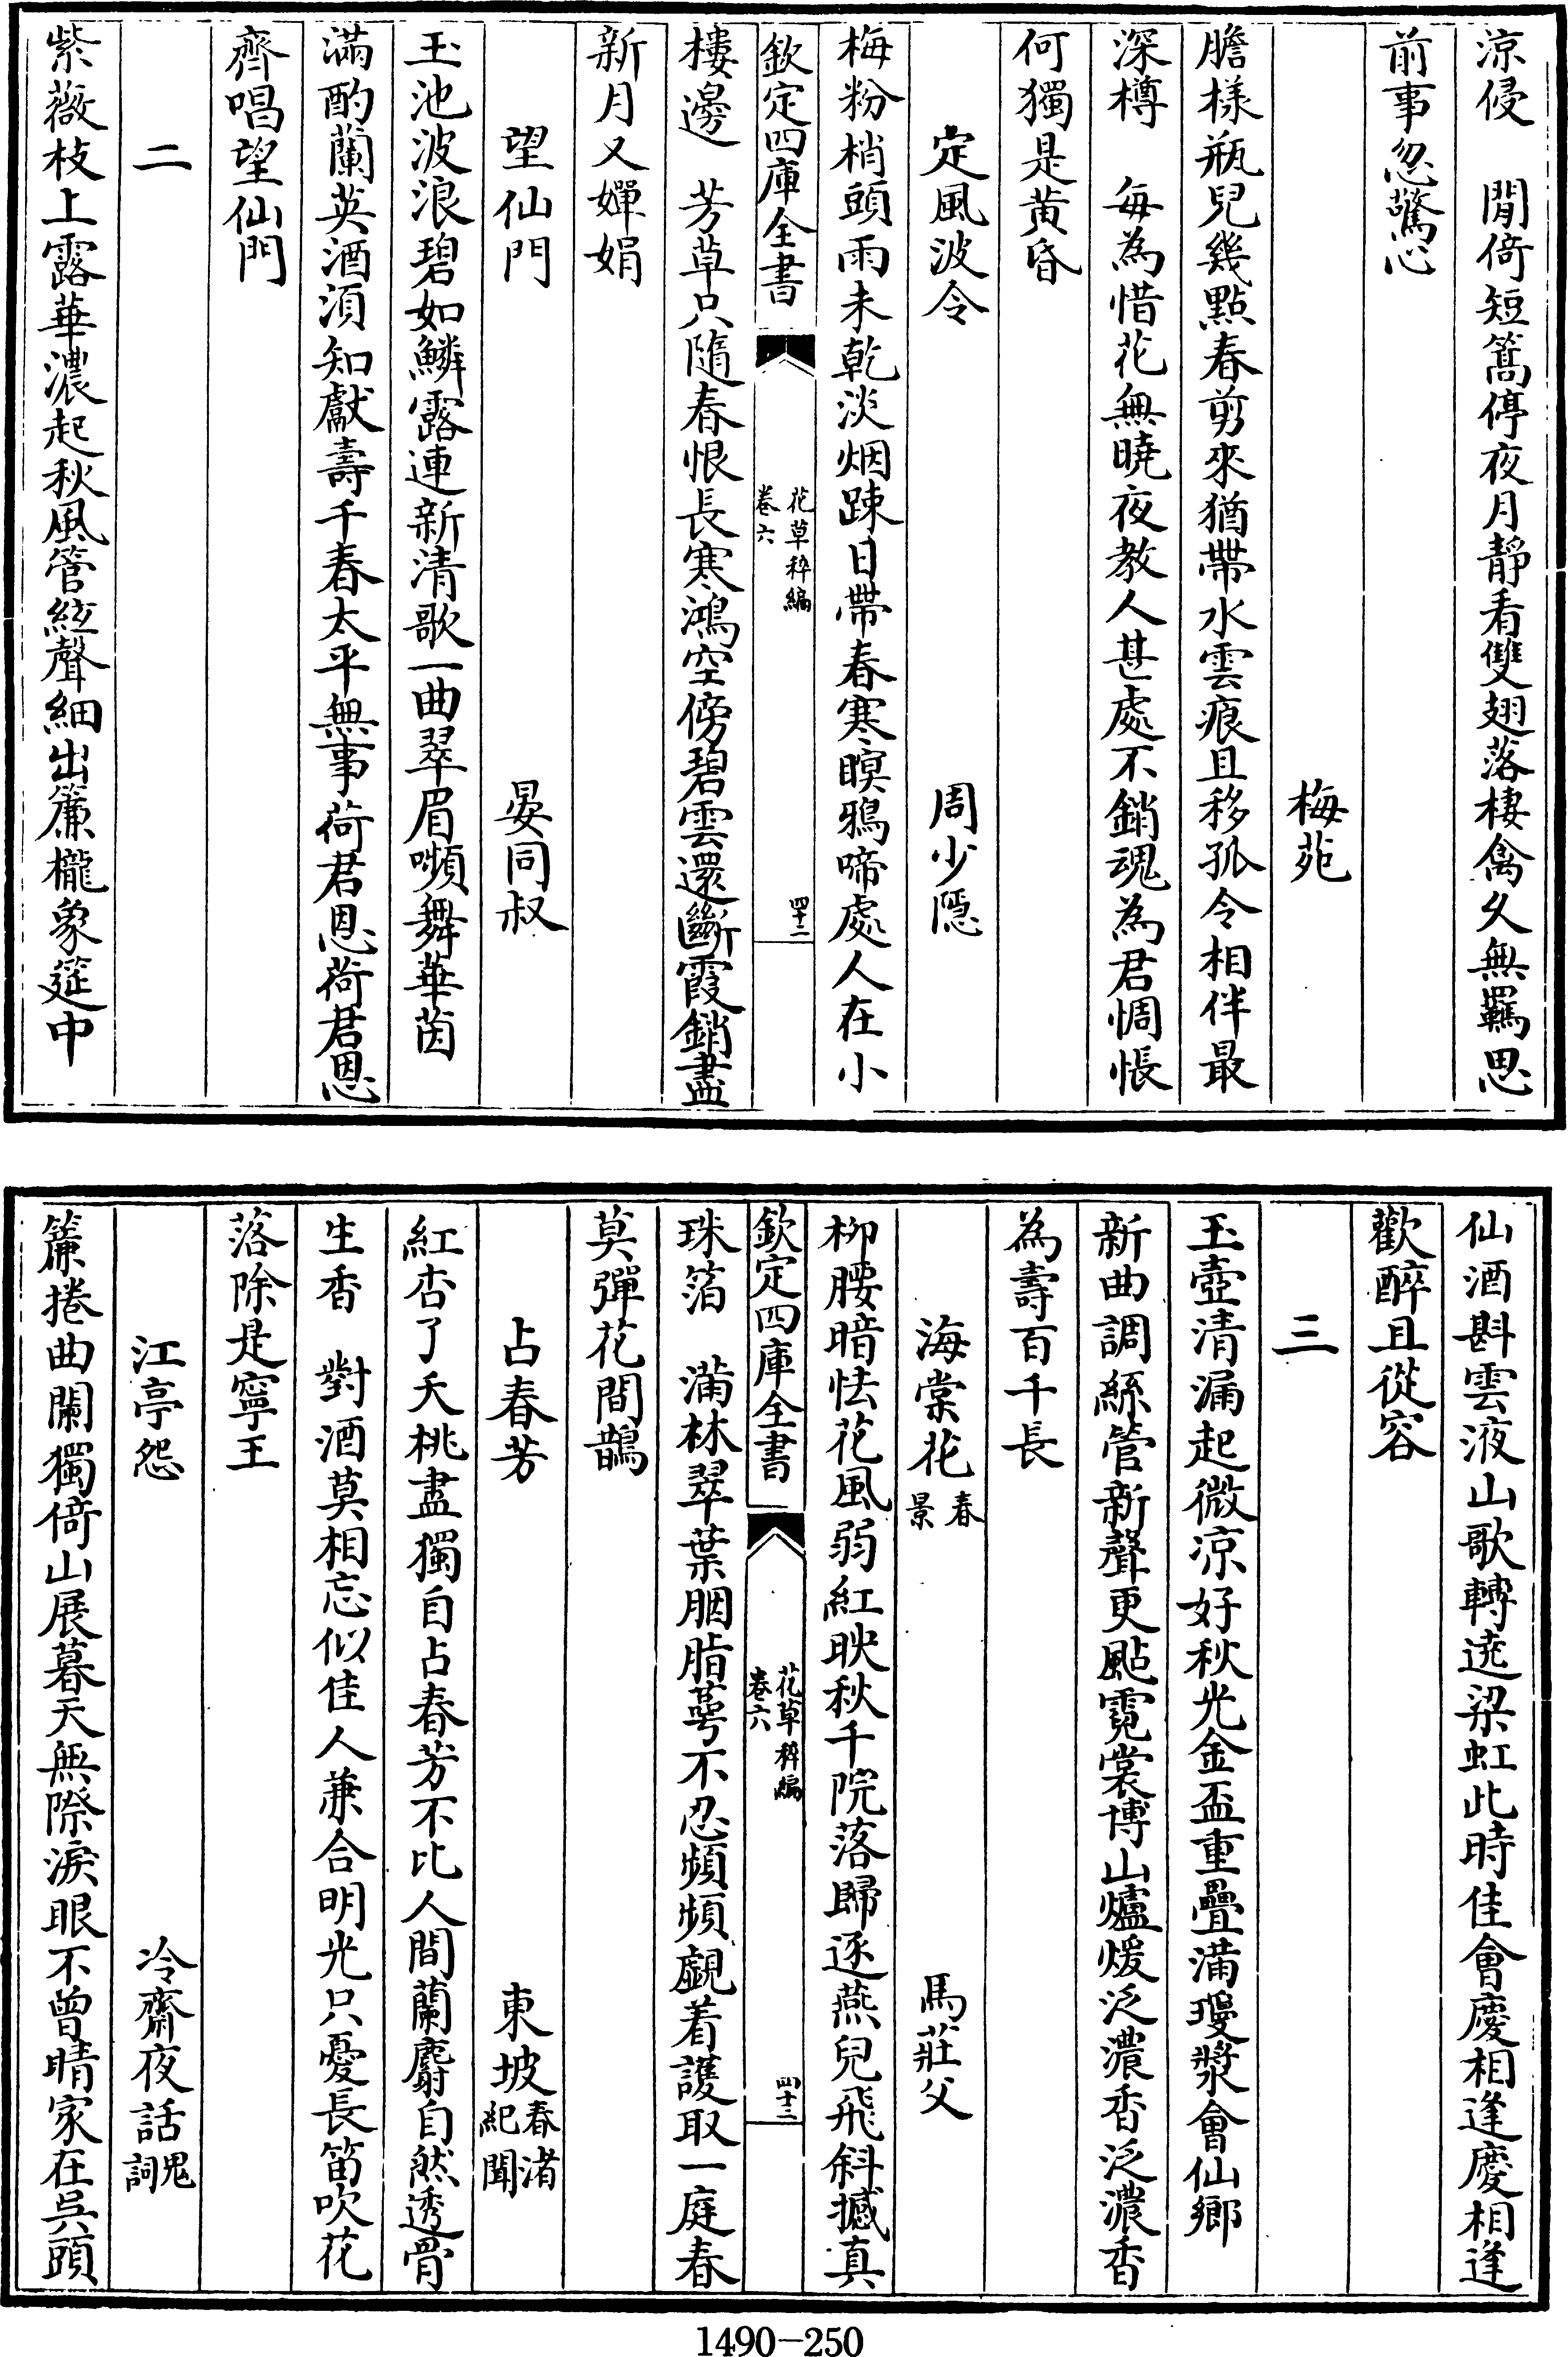 涼侵　閒倚短篙停夜月靜看雙翅落棲禽久無羈思
前事忽驚心
梅苑
膽様瓶兒幾點春剪來猶帶水雲痕且移孤令相伴最
深樽　毎為惜花無曉夜教人甚處不銷魂為君惆悵
何獨是黄昏
定風波令　周少隠
梅粉梢頭雨未乾淡烟疎日帶春寒暝鴉啼處人在小
欽定四庫全書　花草稡編　卷六　四十二
樓邊　芳草只隨春恨長寒鴻空傍碧雲還斷霞銷盡
新月又嬋娟
望仙門　晏同叔
玉池波浪碧如鱗露連新清歌一曲翠眉嚬舞華茵
滿酌蘭英酒須知獻壽千春太平無事荷君恩荷君恩
齊唱望仙門
二
紫薇枝上露華濃起秋風管絃聲細出簾櫳象筵中
仙酒斟雲液山歌轉遶梁虹此時佳會慶相逢慶相逢
歡醉且從容
三
玉壺清漏起微凉好秋光金盃重疊滿瓊漿會仙鄉
新曲調絲管新聲更颭霓裳博山爐煖泛濃香泛濃香
為壽百千長
海棠花春景　馬莊父
柳腰暗怯花風弱紅映秋千院落歸逐燕兒飛斜撼真
欽定四庫全書　花草稡編　卷六　四十三
珠箔　滿林翠葉胭脂萼不忍頻頻覷着護取一庭春
莫彈花間鵲
占春芳　東坡春渚紀聞
紅杏了夭桃盡獨自占春芳不比人間蘭麝自然透骨
生香　對酒莫相忘似佳人兼合明光只憂長笛吹花
落除是寧王
江亭怨　冷齋夜話鬼詞
簾捲曲闌獨倚山展暮天無際淚眼不曾晴家在吳頭
1490－250